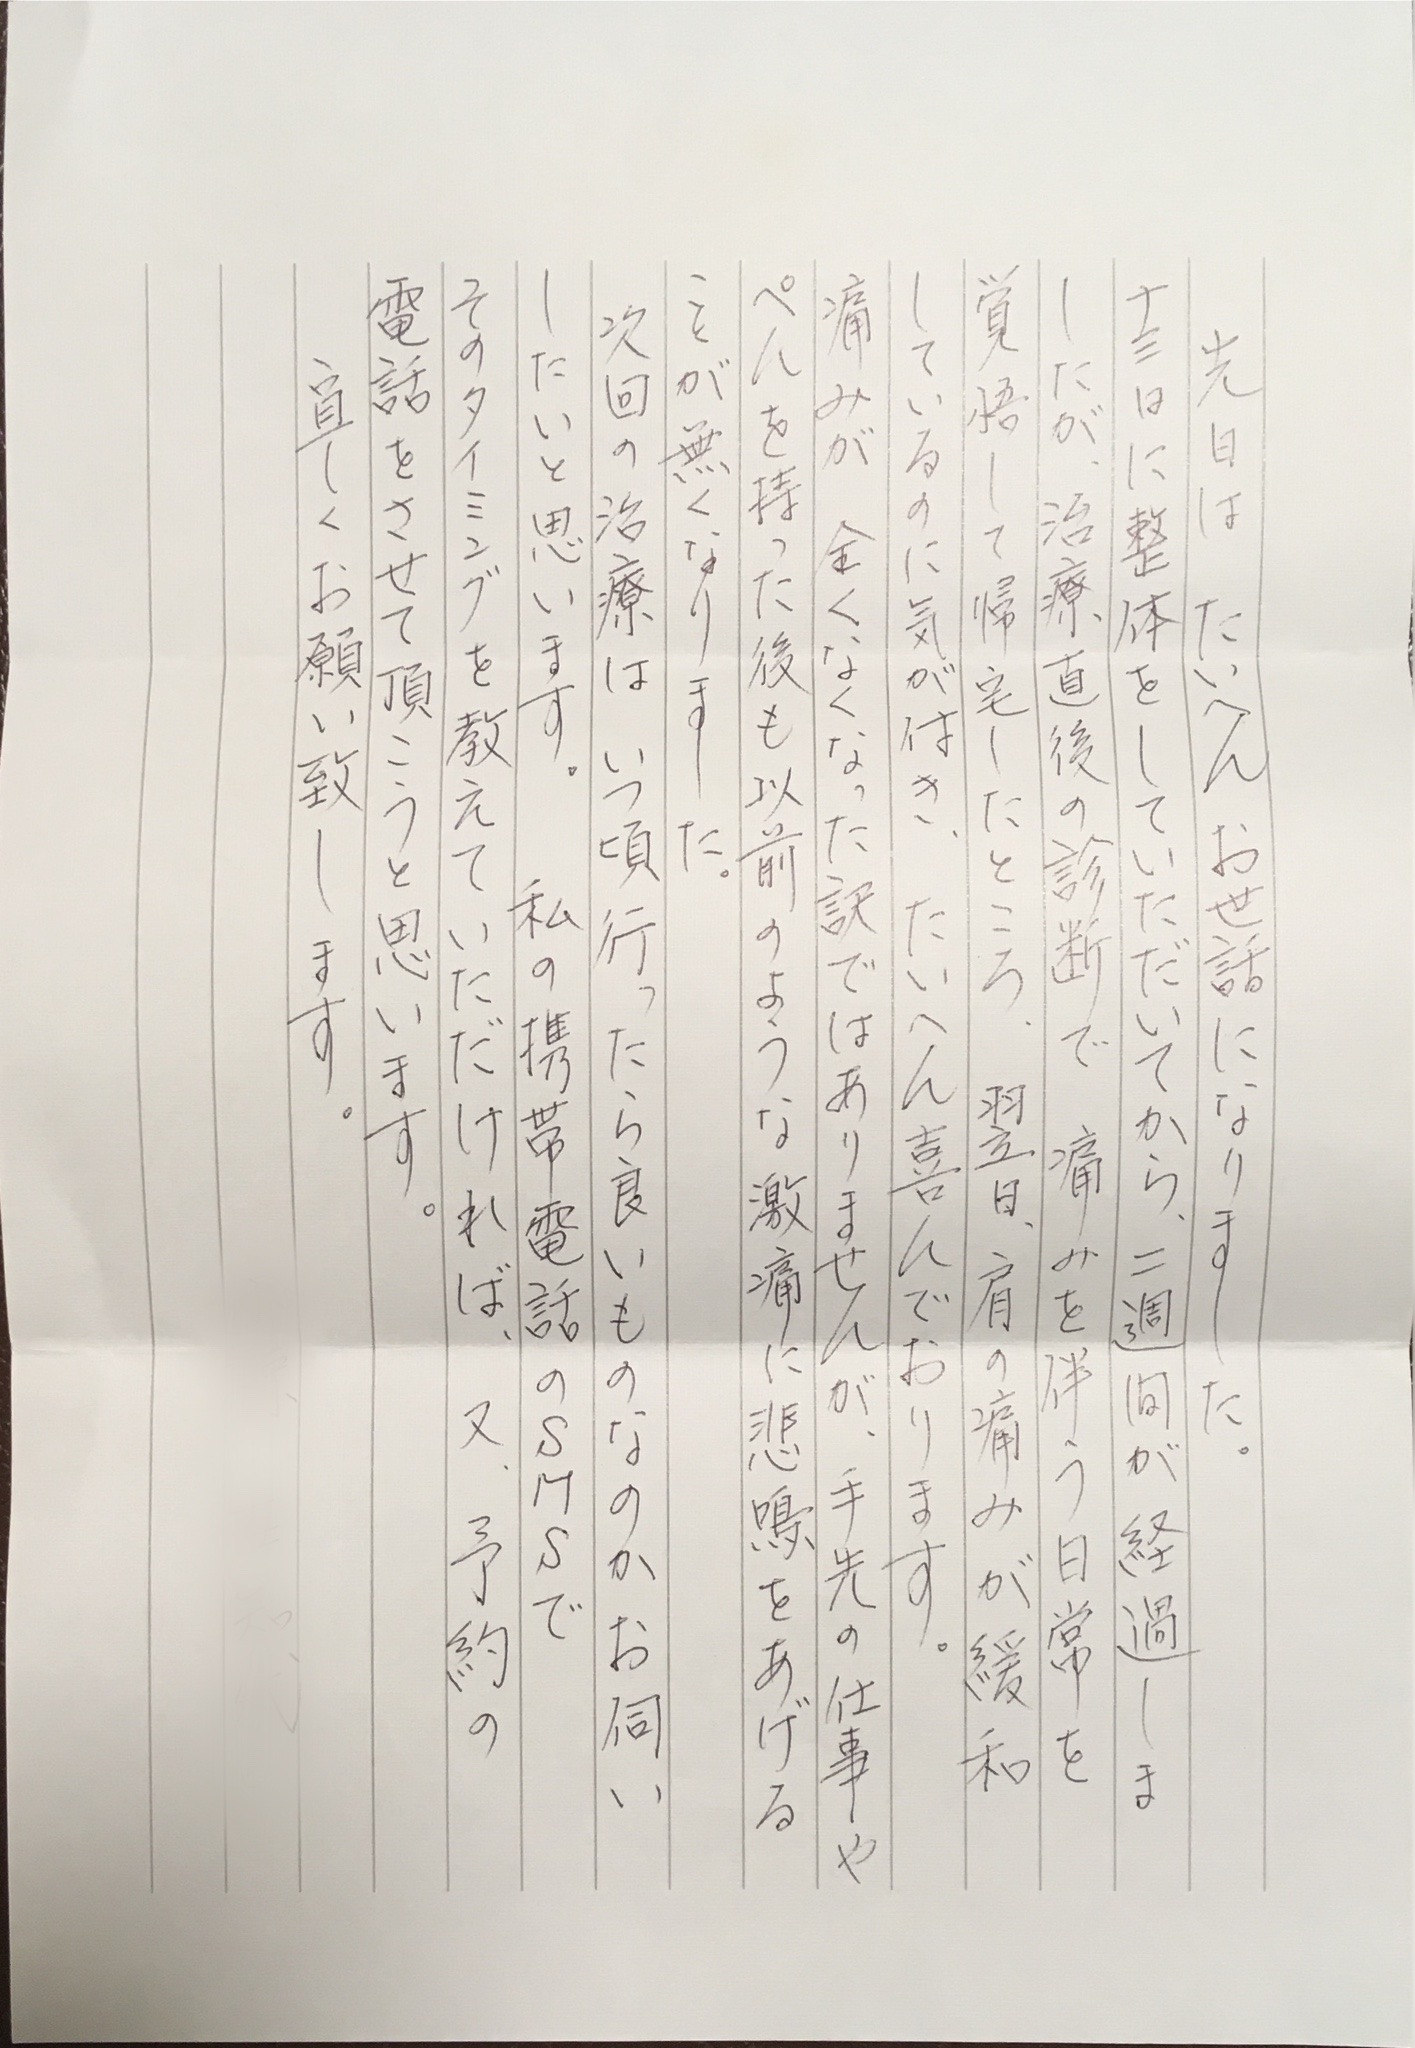 先日は たいへんお世話になりました。
十三日に整体をしていただいてから、二週間が経過しま
したが、治療直後の診断で 痛みを伴う日常を
覚悟して帰宅したところ、翌日、肩の痛みが緩和
しているのに気が付き、たいへん喜んでおります。
痛みが 全くなくなった訳ではありませんが、手先の仕事や
ぺんを持った後も以前のような激痛に悲鳴をあげる
ことが無くなりました。
次回の治療は いつ頃行ったら良いものなのかお伺い
したいと思います。 私の携帯電話のSMSで
そのタイミングを教えていただければ、又、予約の
電話をさせて頂こうと思います。
宜しくお願い致します。